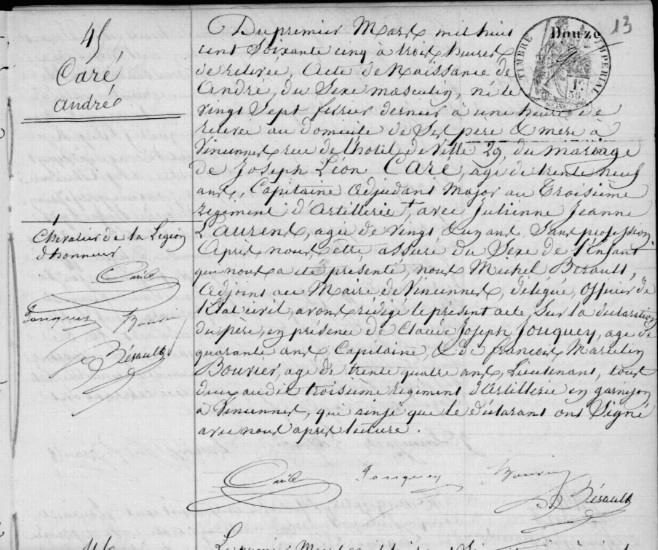 45
Caré
André
Du premier Mars mil huit
cent soixante cinq à trois heures
de relevée, Acte de Naissance de
André, du sexe masculin, né le
vingt sept février dernier à une heure de
relevée au domicile de ses père & mère à
Vincennes rue de l'hôtel de Ville 29, du mariage
de Joseph Léon Caré, agé de trente neuf
ans, Capitaine adjudant Major au Troisième
régiment d'Artillerie + avec Julienne Jeanne
Laurens, agée de vingt ans, sans profession
Après nous être assuré du sexe de l'enfant
qui nous a été présenté, nous Michel Bérault,
Adjoint au Maire de Vincennes, délégué, officier de
l'Etat civil, avons rédigé le présent acte, sur la déclaration
du père, en présence de Claude Joseph Jouquey, age de
quarante ans Capitaine, & de françois Marcelin
Bouvier, age de trente quatre ans Lieutenant, tous
deux au dit troisième régiment d'Artillerie en garnison
à Vincennes, qui ainsi que le déclarant ont signé
avec nous après lecture.
+
Chevalier de la Légion
d'honneur
Caré
Jouquey Bouvier
Bérault
Caré Jouquey Bouvier
Bérault
TIMBRE IMPERIAL
Douze
13
46